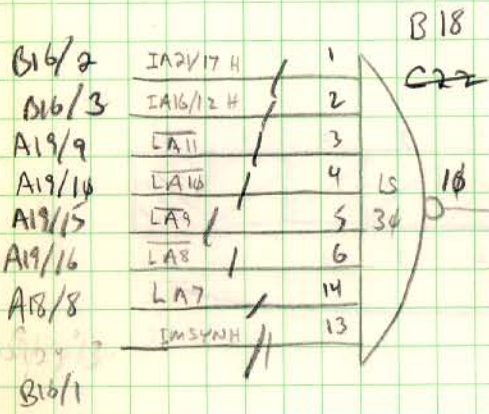 B18
C22
B16/2 IA21/17 H 1
B16/3 IA16/12 H 2
A19/9 L̅A̅1̅1̅ 3
A19/1∅ L̅A̅1̅∅̅ 4
A19/15 L̅A̅9̅ 5
A19/16 L̅A̅8̅ 6
A18/8 LA7 14
IMSYNH 13
B16/1
LS
3∅
1∅